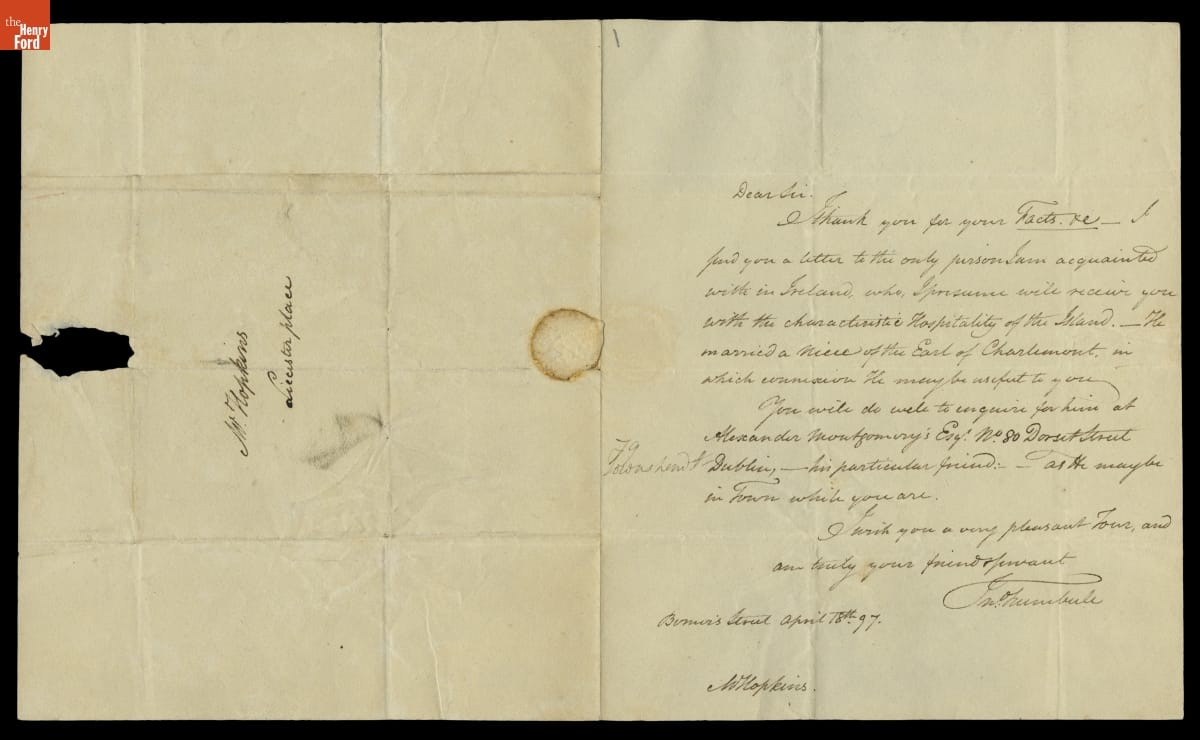 the
Henry
Ford
Mr. Hopkins
Leicester place
Dear Sir.
I thank you for your Facts. &c — I
send you a letter to the only person I am acquainted
with in Ireland, who, I presume will receive you
with the characteristic Hospitality of the Island. — He
married a niece of the Earl of Charlemont, in
which connexion He may be useful to you
You will do well to enquire for him at
Alexander Montgomery's Esqr. No 80 Dorset Street
70
Townshend St
Dublin, — his particular friend: — as He may be
in Town while you are.
I wish you a very pleasant Tour, and
am truly your friend & servant
Jno. Trumbull
Berners Street April 18th. 97.
Mr Hopkins.